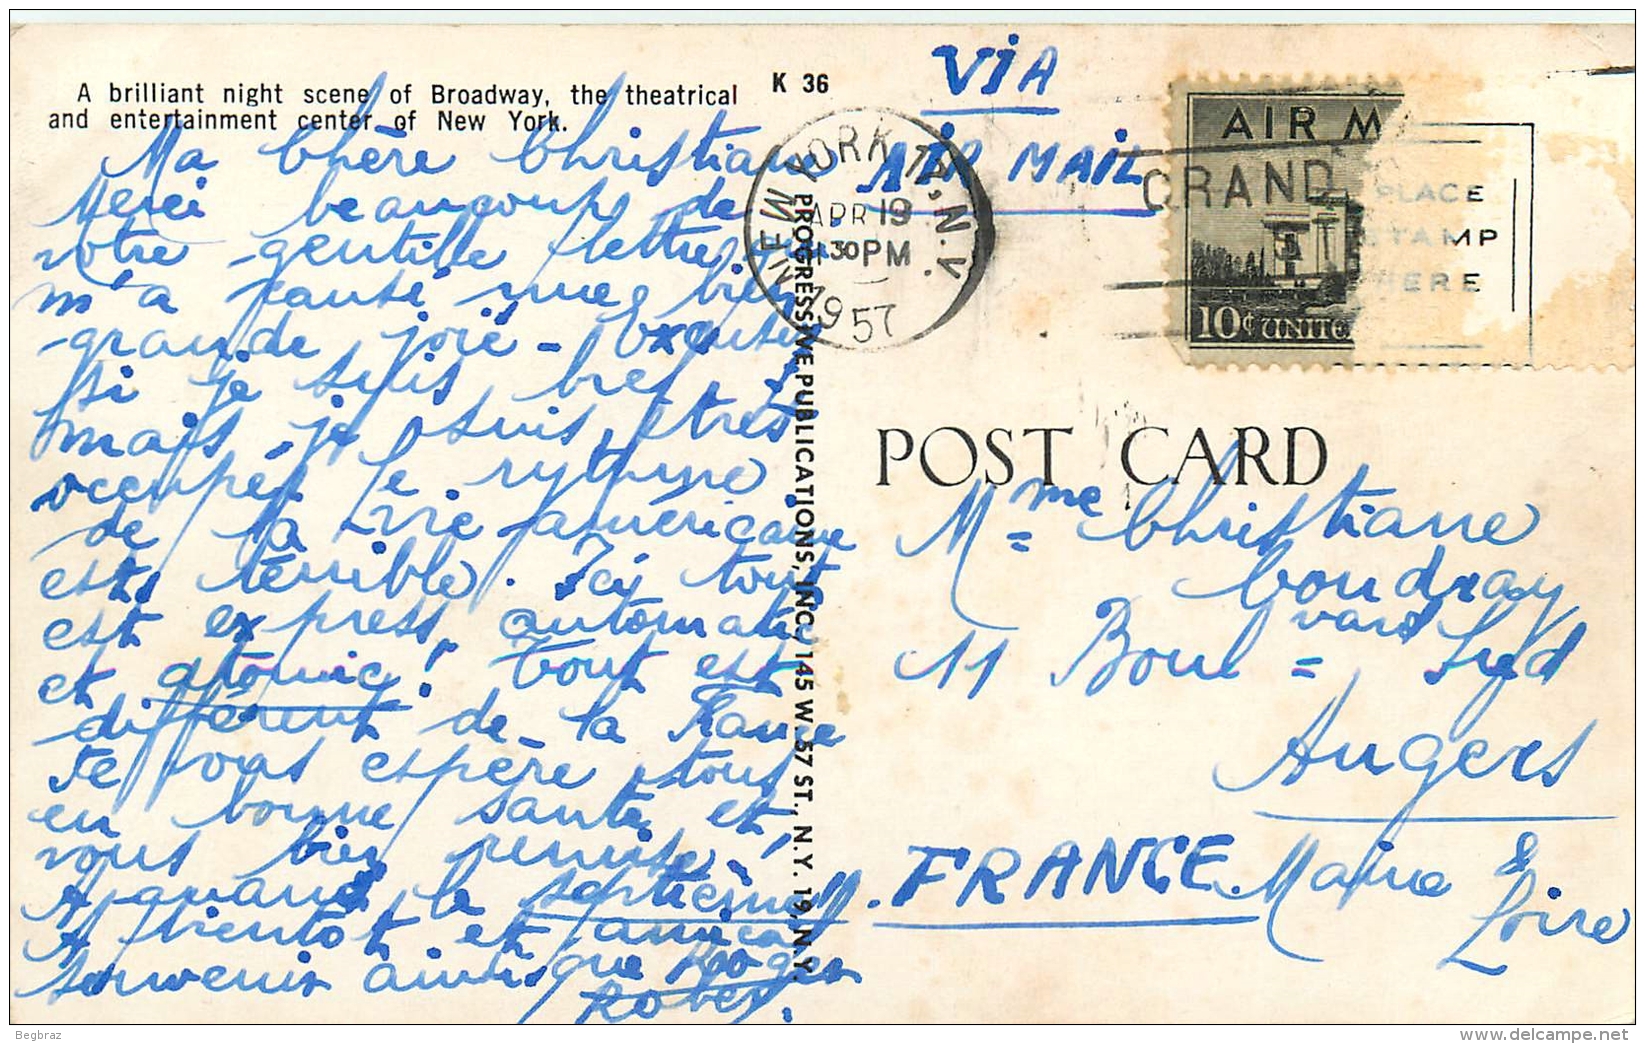 A brilliant night scene of Broadway, the theatrical
and entertainment center of New York.
K 36
Ma Chère Christiane
Merci beaucoup de
votre gentille lettre qui
m'a causé une bien
grande joie - Excusez
si je suis bref
mais je suis très
occupé. le rythme
de la vie américaine
est terrible. Ici tout
est express, automatic
et atomic! Tout est
différent de la France
Je vous espère tous
en bonne santé et,
vous bien remise -
A quand le septième!!
A bientôt et amical
souvenir ainsi que Roger
Robert.
PROGRESSIVE PUBLICATIONS, INC, 145 W. 57 ST., N.Y. 19, N.Y.
VIA
AIR MAIL
NEW YORK N.Y.
APR 19
30 PM
1957
AIR M
GRAND
10¢ UNITE
PLACE
STAMP
HERE
POST CARD
Mme Christiane
Coudray
11 Boulvard Sud
Angers
FRANCE. Maine &
Loire
Begbraz
delcampe.net